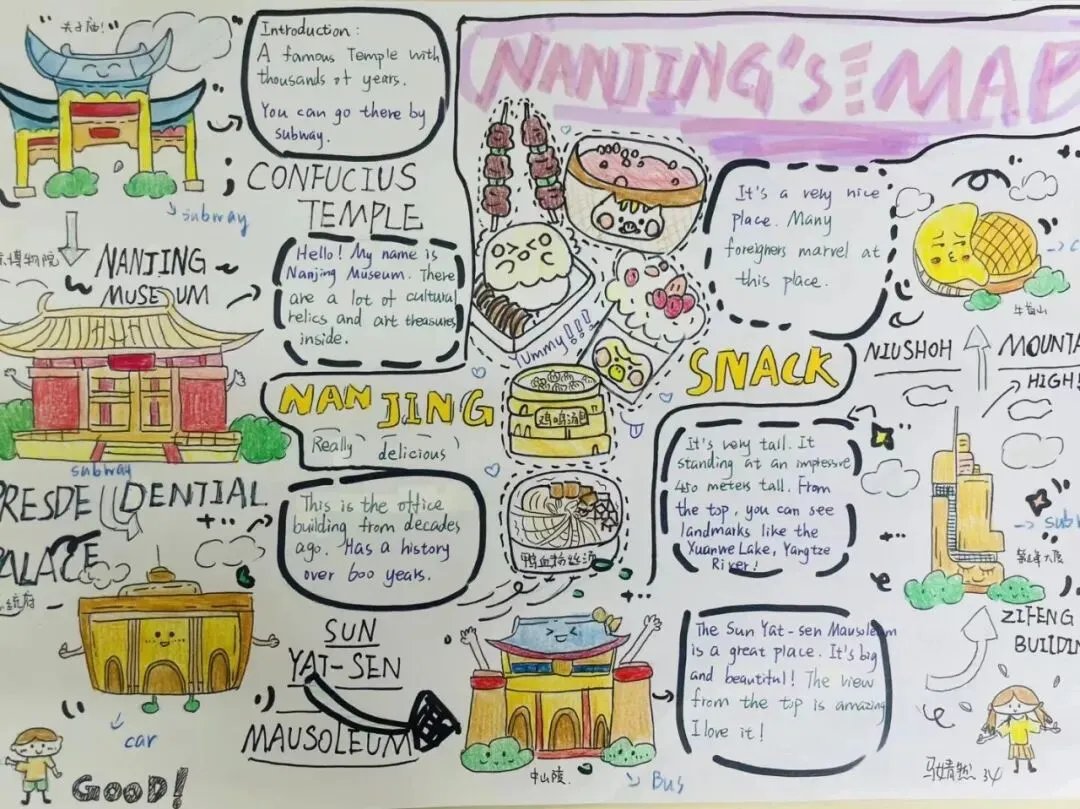 NANJING'S MAP
夫子庙!
Introduction:
A famous Temple with
thousands of years.
You can go there by
subway.
subway
CONFUCIUS
TEMPLE
博物院
NANJING
MUSEUM
Hello! My name is
Nanjing Museum. There
are a lot of cultural
relics and art treasures
inside.
subway
NANJING
Really delicious
Yummy!!!
SNACK
鸡鸣汤包
鸭血粉丝汤
PRESDEIDENTIAL
PALACE
总统府
This is the office
building from decades
ago. Has a history
over 600 years.
car
GOOD!
SUN
YAT-SEN
MAUSOLEUM
中山陵
Bus
The Sun Yat-sen Mausoleum
is a great place. It's big
and beautiful! The view
from the top is amazing
I love it!
It's a very nice
place. Many
foreigners marvel at
this place.
牛首山
NIUSHOH MOUNTA
HIGH!
It's very tall. It
standing at an impressive
450 meters tall. From
the top, you can see
landmarks like the
Xuanwe Lake, Yangtze
River!
sub
ZIFENG
BUILDIN